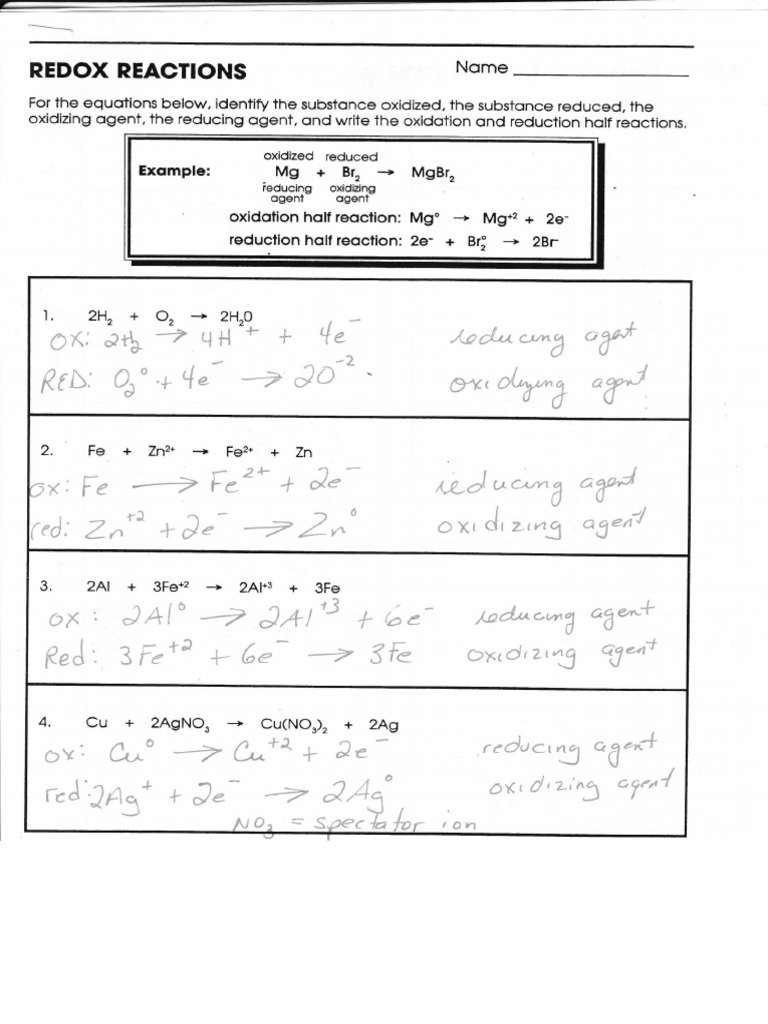 REDOX REACTIONS Name
For the equations below, identify the substance oxidized, the substance reduced, the
oxidizing agent, the reducing agent, and write the oxidation and reduction half reactions.
oxidized reduced
Example: Mg + Br₂ → MgBr₂
reducing oxidizing
agent agent
oxidation half reaction: Mg° → Mg⁺² + 2e⁻
reduction half reaction: 2e⁻ + Br₂° → 2Br⁻
1. 2H₂ + O₂ → 2H₂0
OX: 2H₂ → 4H⁺ + 4e⁻ reducing agent
RED: O₂° + 4e⁻ → 2O⁻² oxidizing agent
2. Fe + Zn²⁺ → Fe²⁺ + Zn
ox: Fe → Fe²⁺ + 2e⁻ reducing agent
red: Zn⁺² + 2e⁻ → Zn° oxidizing agent
3. 2Al + 3Fe⁺² → 2Al⁺³ + 3Fe
ox: 2Al° → 2Al⁺³ + 6e⁻ reducing agent
Red: 3Fe⁺² + 6e⁻ → 3Fe oxidizing agent
4. Cu + 2AgNO₃ → Cu(NO₃)₂ + 2Ag
ox: Cu° → Cu⁺² + 2e⁻ reducing agent
red: 2Ag⁺ + 2e⁻ → 2Ag° oxidizing agent
NO₃ = spectator ion